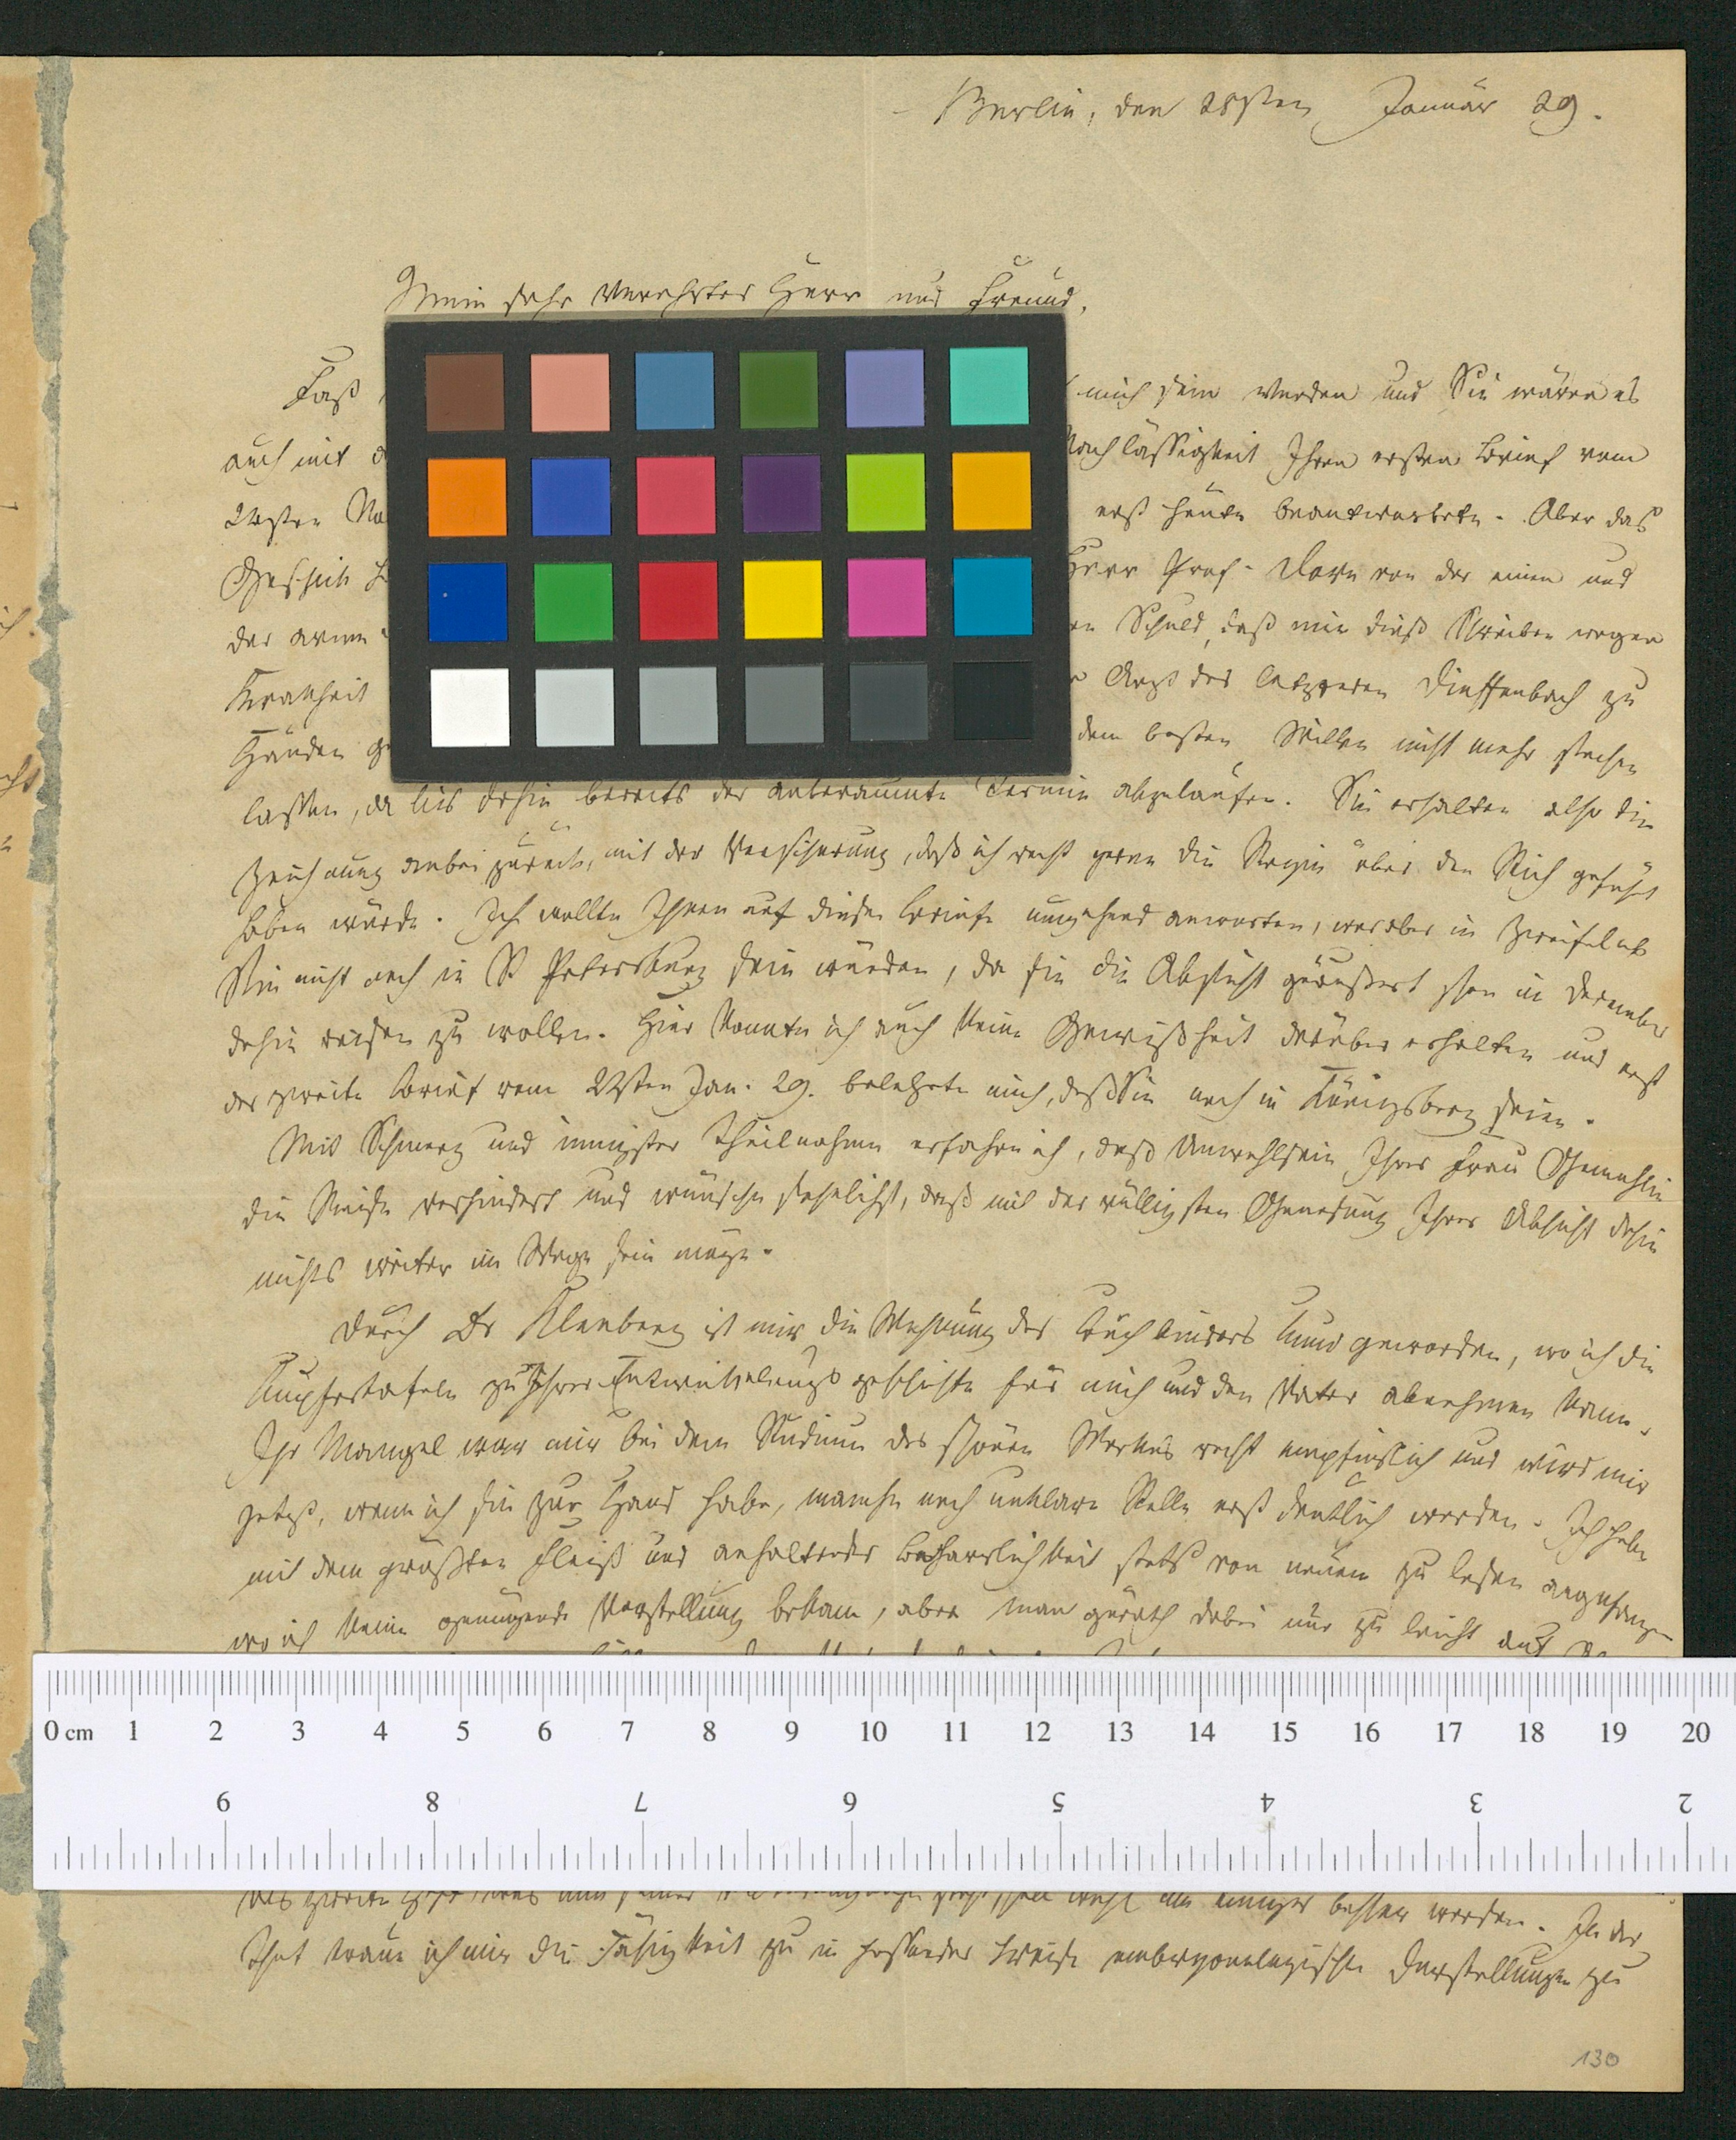 Berlin, den 28sten Januar 29.
Mein sehr verehrter Herr und Freund,
Fast mich sein werden und Sie wären es
auch mit Nachlässigkeit Ihren ersten Brief vom
erst heute beantwortete. Aber das
Geschick Herr Prof. Dorn von der einen und
der armen Schuld, daß mir dieß Schreiben wegen
Krankheit Arzt des letzteren Dieffenbach zu
Händen dem besten Willen nicht mehr stechen
lassen, da bis dahin bereits der anberaumte Termin abgelaufen. Sie erhalten also die
Zeichnung anbei zurück, mit der Versicherung, daß ich recht gerne die Regie über den Stich geführt
haben würde. Ich wollte Ihnen auf diesen Brief umgehend antworten, war aber in Zweifel ob
Sie nicht auch in St Petersburg sein würden, da sie die Absicht geäußert schon in December
dahin reisen zu wollen. Hier konnte ich auch keine Gewißheit darüber erhalten und erst
der zweite Brief vom Jan. 29. belehrte mich, daß Sie noch in Königsberg seien.
Mit Schmerz und innigster Theilnahme erfahre ich, daß Unwohlsein Ihrer Frau Gemahlin
die Reise verhindert und wünsche sehnlichst, daß mit der völligsten Genesung Ihrer Absicht dahin
nichts weiter im Wege sein möge.
Durch Dr ist mir die Wohnung des Buchbinders kund geworden, wo ich die
Kupfertafeln zu Ihrer Entwickelungsgeschichte für mich und den Vater abnehmen kann.
Ihr Mangel war mir bei dem Studium des schönen Werkes recht empfindlich und wird mir
jetzt, wenn ich sie zur Hand habe, manche noch unklare Stelle erst deutlich werden. Ich habe
mit dem größten Fleiß und anhaltender Beharrlichkeit stets von neuem zu lesen angefangen
wo ich keine genügende Vorstellung bekam, aber man geräth dabei nur zu leicht auf
das zweite wohl um einiges besser werden. In der
That traue ich mir die Fähigkeit zu in Weise embryonologische Darstellungen zu
130
0 cm 1 2 3 4 5 6 7 8 9 10 11 12 13 14 15 16 17 18 19 20
9 8 7 6 5 4 3 2